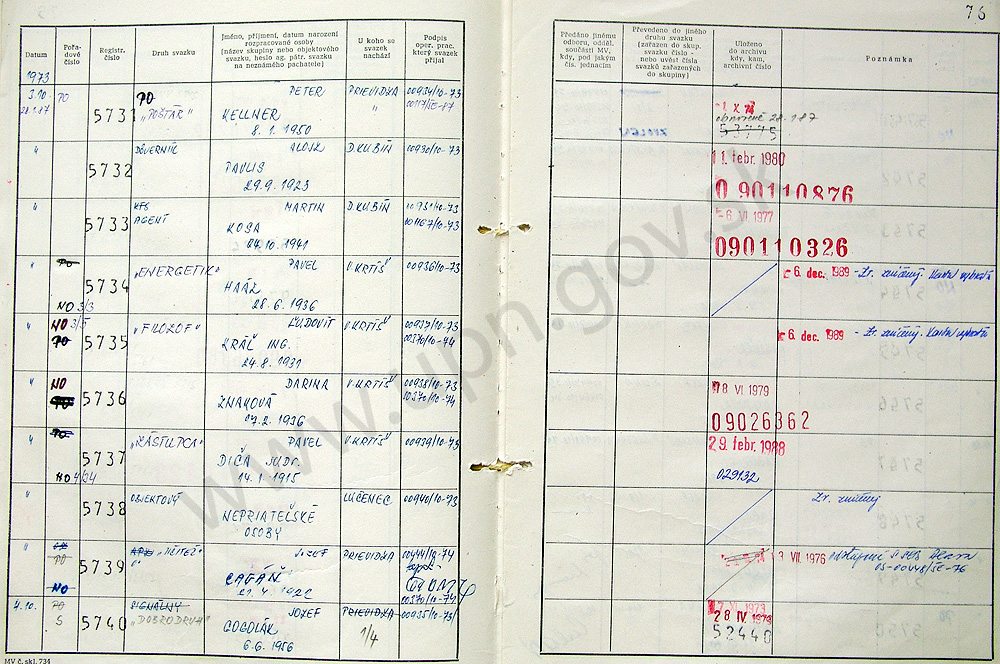 76
Datum
Pořa-
dové
číslo
Registr.
číslo
Druh svazku
Jméno, příjmení, datum narození
rozpracované osoby
(název skupiny nebo objektového
svazku, heslo ag. pátr. svazku
na neznámého pachatele)
U koho se
svazek
nachází
Podpis
oper. prac.
který svazek
přijal
Předáno jinému
odboru, odděl.
součásti MV,
kdy, pod jakým
čís. jednacím
Převedeno do jiného
druhu svazku
(zařazen do skup.
svazku číslo -
nebo uvést čísla
svazků zařazených
do skupiny)
Uloženo
do archivu
kdy, kam,
archivní číslo
Poznámka
1973
3.10. PO 5731 PO PETER PRIEVIDZA 00934/10-73
28.1.87 "POŠTÁR" KELLNER "
8.1.1950
obnovené 28.1.87
53775
" 5732 DÔVERNÍK ALOJZ D.KUBÍN 00930/10-73
PAVLIS
29.9.1923
11. febr. 1980
090110876
" 5733 KFS MARTIN D.KUBÍN 00931/10-73
AGENT KOSA
24.10.1941
-6. VI 1977
090110326
" PO 5734 "ENERGETIK" PAVEL V.KRTÍŠ 00936/10-73
NO 3/3 HAÁZ
28.6.1936
6. dec. 1989 - Zv. zničený
" NO 3/5 5735 "FILOZOF" ĽUDOVÍT V.KRTÍŠ 00937/10-73
PO KRÁĽ ING. 00370/10-74
24.8.1931
6. dec. 1989 - Zv. zničený
" NO 5736 DARINA V.KRTÍŠ 00938/10-73
PO ZNAKOVÁ 00370/10-74
7.2.1936
8 VI 1979
09026362
" PO 5737 "ZÁSTUPCA" PAVEL V.KRTÍŠ 00939/10-73
NO DIČA JUDr.
14.1.1915
29. febr. 1988
029132
" 5738 OBJEKTOVÝ LUČENEC 00940/10-73
NEPRIATEĽSKÉ
OSOBY
Zv. zničený
" 5739 JOZEF PRIEVIDZA 00444/10-74
PO CAGÁŇ
NO 00370/10-74
3 VII. 1976
4.10. PO 5740 SIGNÁLNY JOZEF PRIEVIDZA 00935/10-73
S "DOBRODRUH" GOGOLÁK 1/4
6.6.1956
28 IV 1973
52440
MV č. skl. 734
www.upn.gov.sk